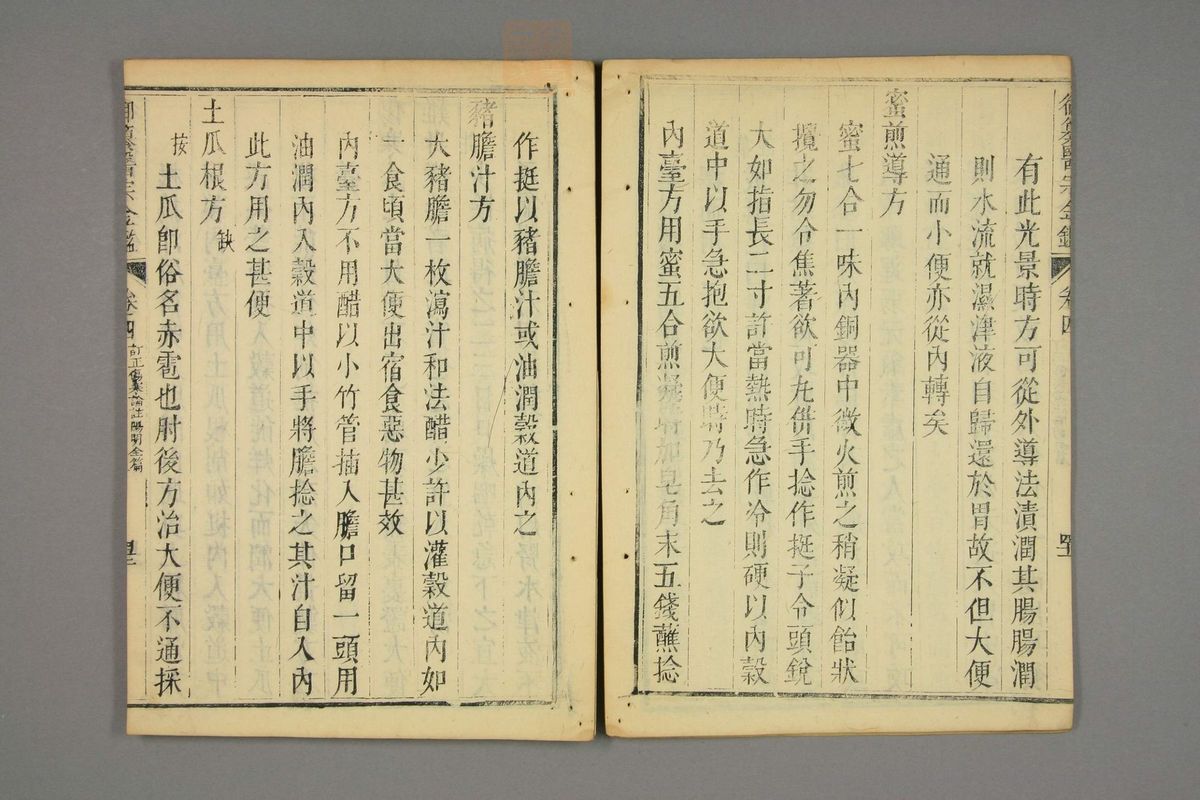 御纂醫宗金鑑 卷四
有此光景時方可從外導法漬潤其腸腸潤
則水流就濕津液自歸還於胃故不但大便
通而小便亦從內轉矣
蜜煎導方
蜜七合一味內銅器中微火煎之稍凝似飴狀
攪之勿令焦著欲可丸併手捻作挺子令頭銳
大如指長二寸許當熱時急作冷則硬以內穀
道中以手急抱欲大便時乃去之
內臺方用蜜五合煎凝時加皂角末五錢蘸捻
作挺以豬膽汁或油潤穀道內之
豬膽汁方
大豬膽一枚瀉汁和法醋少許以灌穀道內如
一食頃當大便出宿食惡物甚效
內臺方不用醋以小竹管插入膽口留一頭用
油潤內入穀道中以手將膽捻之其汁自入內
此方用之甚便
土瓜根方 缺
按土瓜卽俗名赤雹也肘後方治大便不通採
御纂醫宗金鑑 卷四 訂正傷寒論註陽明全篇